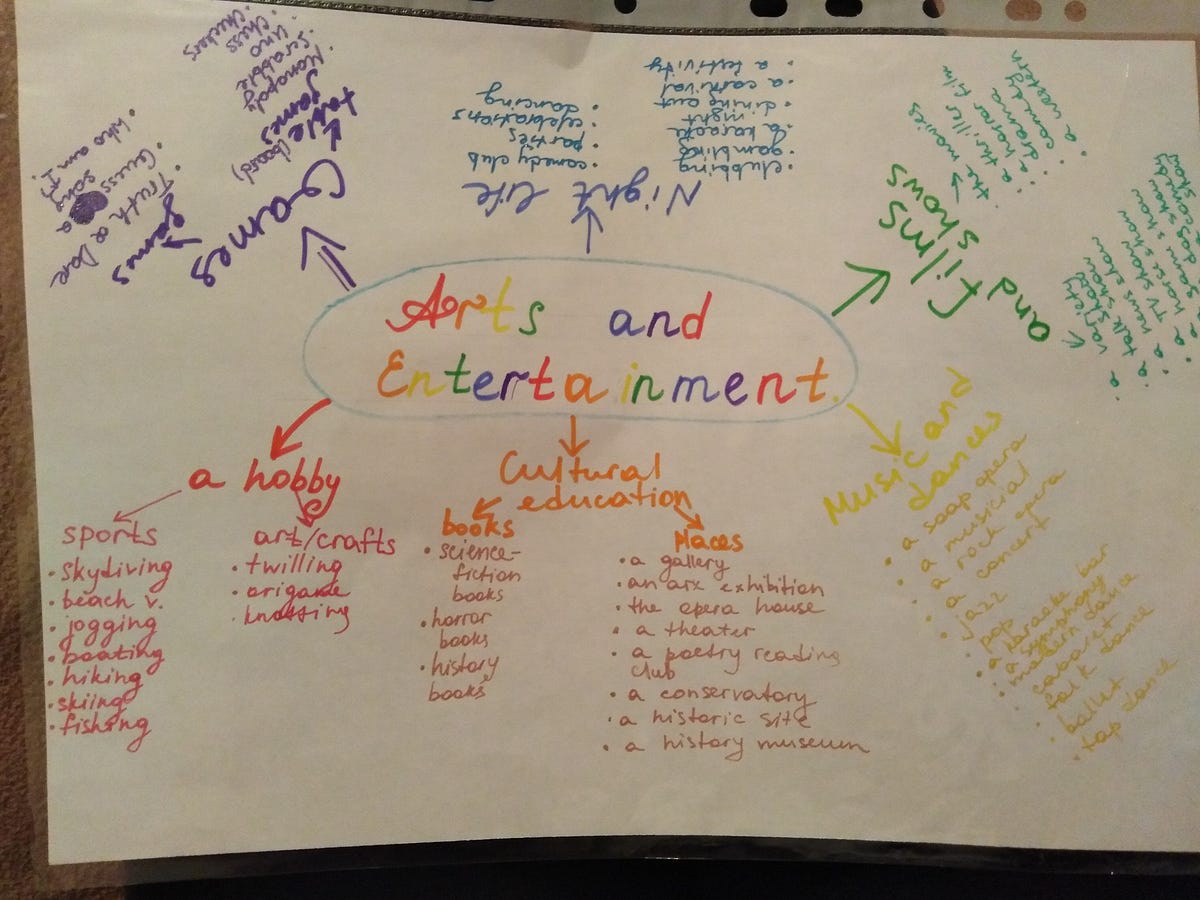 Arts and
Entertainment.
Games
table (board)
games
• Monopoly
• Scrabble
• Uno
• Chess
• Checkers
games
• Truth or Dare
• Guess a
song
• Who am I?
Night life
• clubbing
• gambling
• a karaoke
night
• dining out
• a carnival
• a festivity
• comedy club
• parties
• celebrations
• dancing
films
and shows
• the movies
• a thriller film
• a horror
• a drama
• a comedy
• a western
• variety
show
• a talk show
• a news show
• a TV show
• a horse show
• a dog show
• a comedy
show
Music and
dances
• a soap opera
• a musicial
• a rock opera
• a concert
• jazz
• pop
• a karaoke bar
• a symphony
• modern dance
• cabaret
• folk dance
• ballet
• tap dance
Cultural
education
books
• science-
fiction
books
• horror
books
• history
books
Places
• a gallery
• an art exhibition
• the opera house
• a theater
• a poetry reading
club
• a conservatory
• a historic site
• a history museum
a hobby
sports
• skydiving
• beach v.
• jogging
• boating
• hiking
• skiing
• fishing
art/crafts
• twilling
• knotting